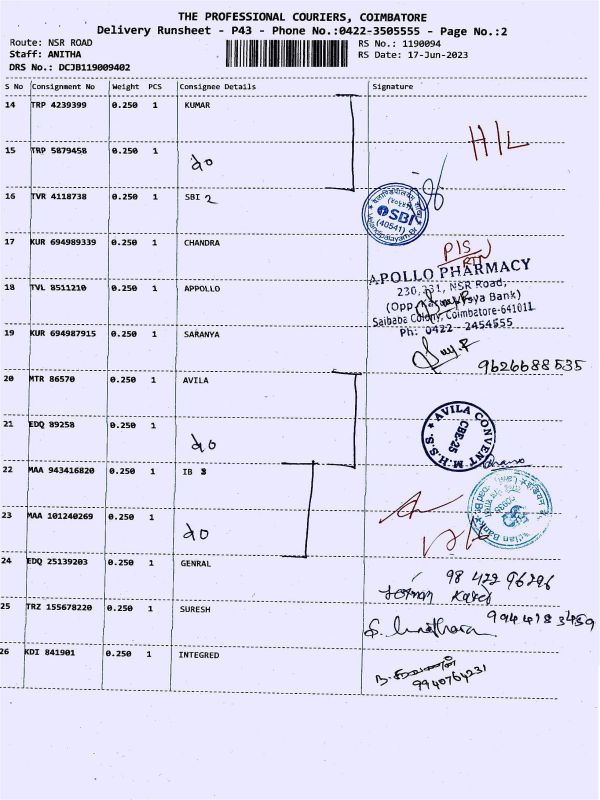 THE PROFESSIONAL COURIERS, COIMBATORE
Delivery Runsheet - P43 - Phone No.:0422-3505555 - Page No.:2
Route: NSR ROAD
RS No.: 1190094
Staff: ANITHA
RS Date: 17-Jun-2023
DRS No.: DCJB119009402
S No Consignment No Weight PCS Consignee Details Signature
14 TRP 4239399 0.250 1 KUMAR
H/L
15 TRP 5879458 0.250 1 do
16 TVR 4118738 0.250 1 SBI 2
SBI
(40541)
Velandipalayam Br
17 KUR 694989339 0.250 1 CHANDRA
P/S
RTN
18 TVL 8511210 0.250 1 APPOLLO
APOLLO PHARMACY
230,231, NSR Road,
(Opp. Karur Vysya Bank)
Saibaba Colony, Coimbatore-641011
Ph: 0422 - 2454555
19 KUR 694987915 0.250 1 SARANYA
9626688535
20 MTR 86570 0.250 1 AVILA
AVILA CONVENT M.H.S.S.
CBE-25
21 EDQ 89258 0.250 1 do
22 MAA 943416820 0.250 1 IB 3
23 MAA 101240269 0.250 1 do
Indian Bank
24 EDQ 25139203 0.250 1 GENRAL
98 422 96296
25 TRZ 155678220 0.250 1 SURESH
9944183459
26 KDI 841901 0.250 1 INTEGRED
9940764231